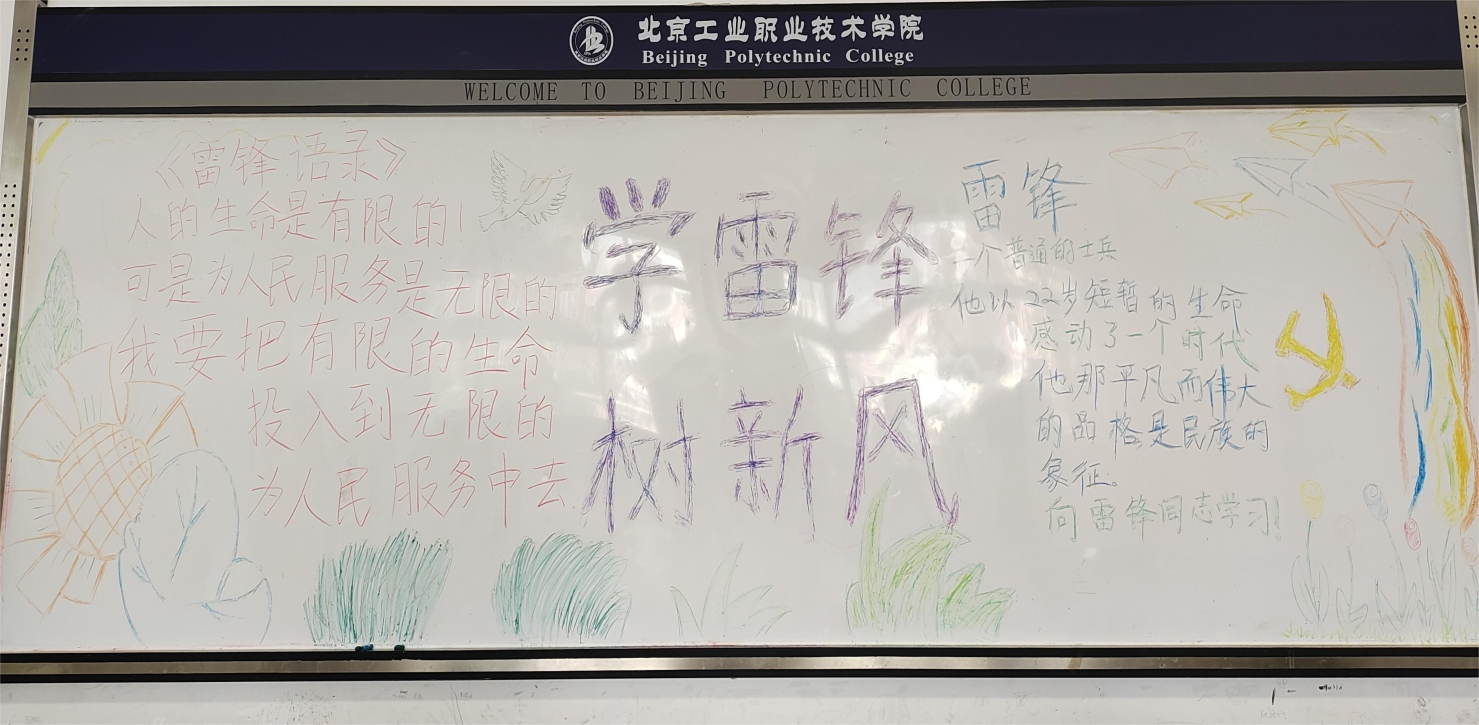 北京工业职业技术学院
Beijing Polytechnic College
WELCOME TO BEIJING POLYTECHNIC COLLEGE
《雷锋语录》
人的生命是有限的
可是为人民服务是无限的
我要把有限的生命
投入到无限的
为人民服务中去
学雷锋
树新风
雷锋
一个普通的士兵
他以22岁短暂的生命
感动了一个时代
他那平凡而伟大
的品格是民族的
象征。
向雷锋同志学习!